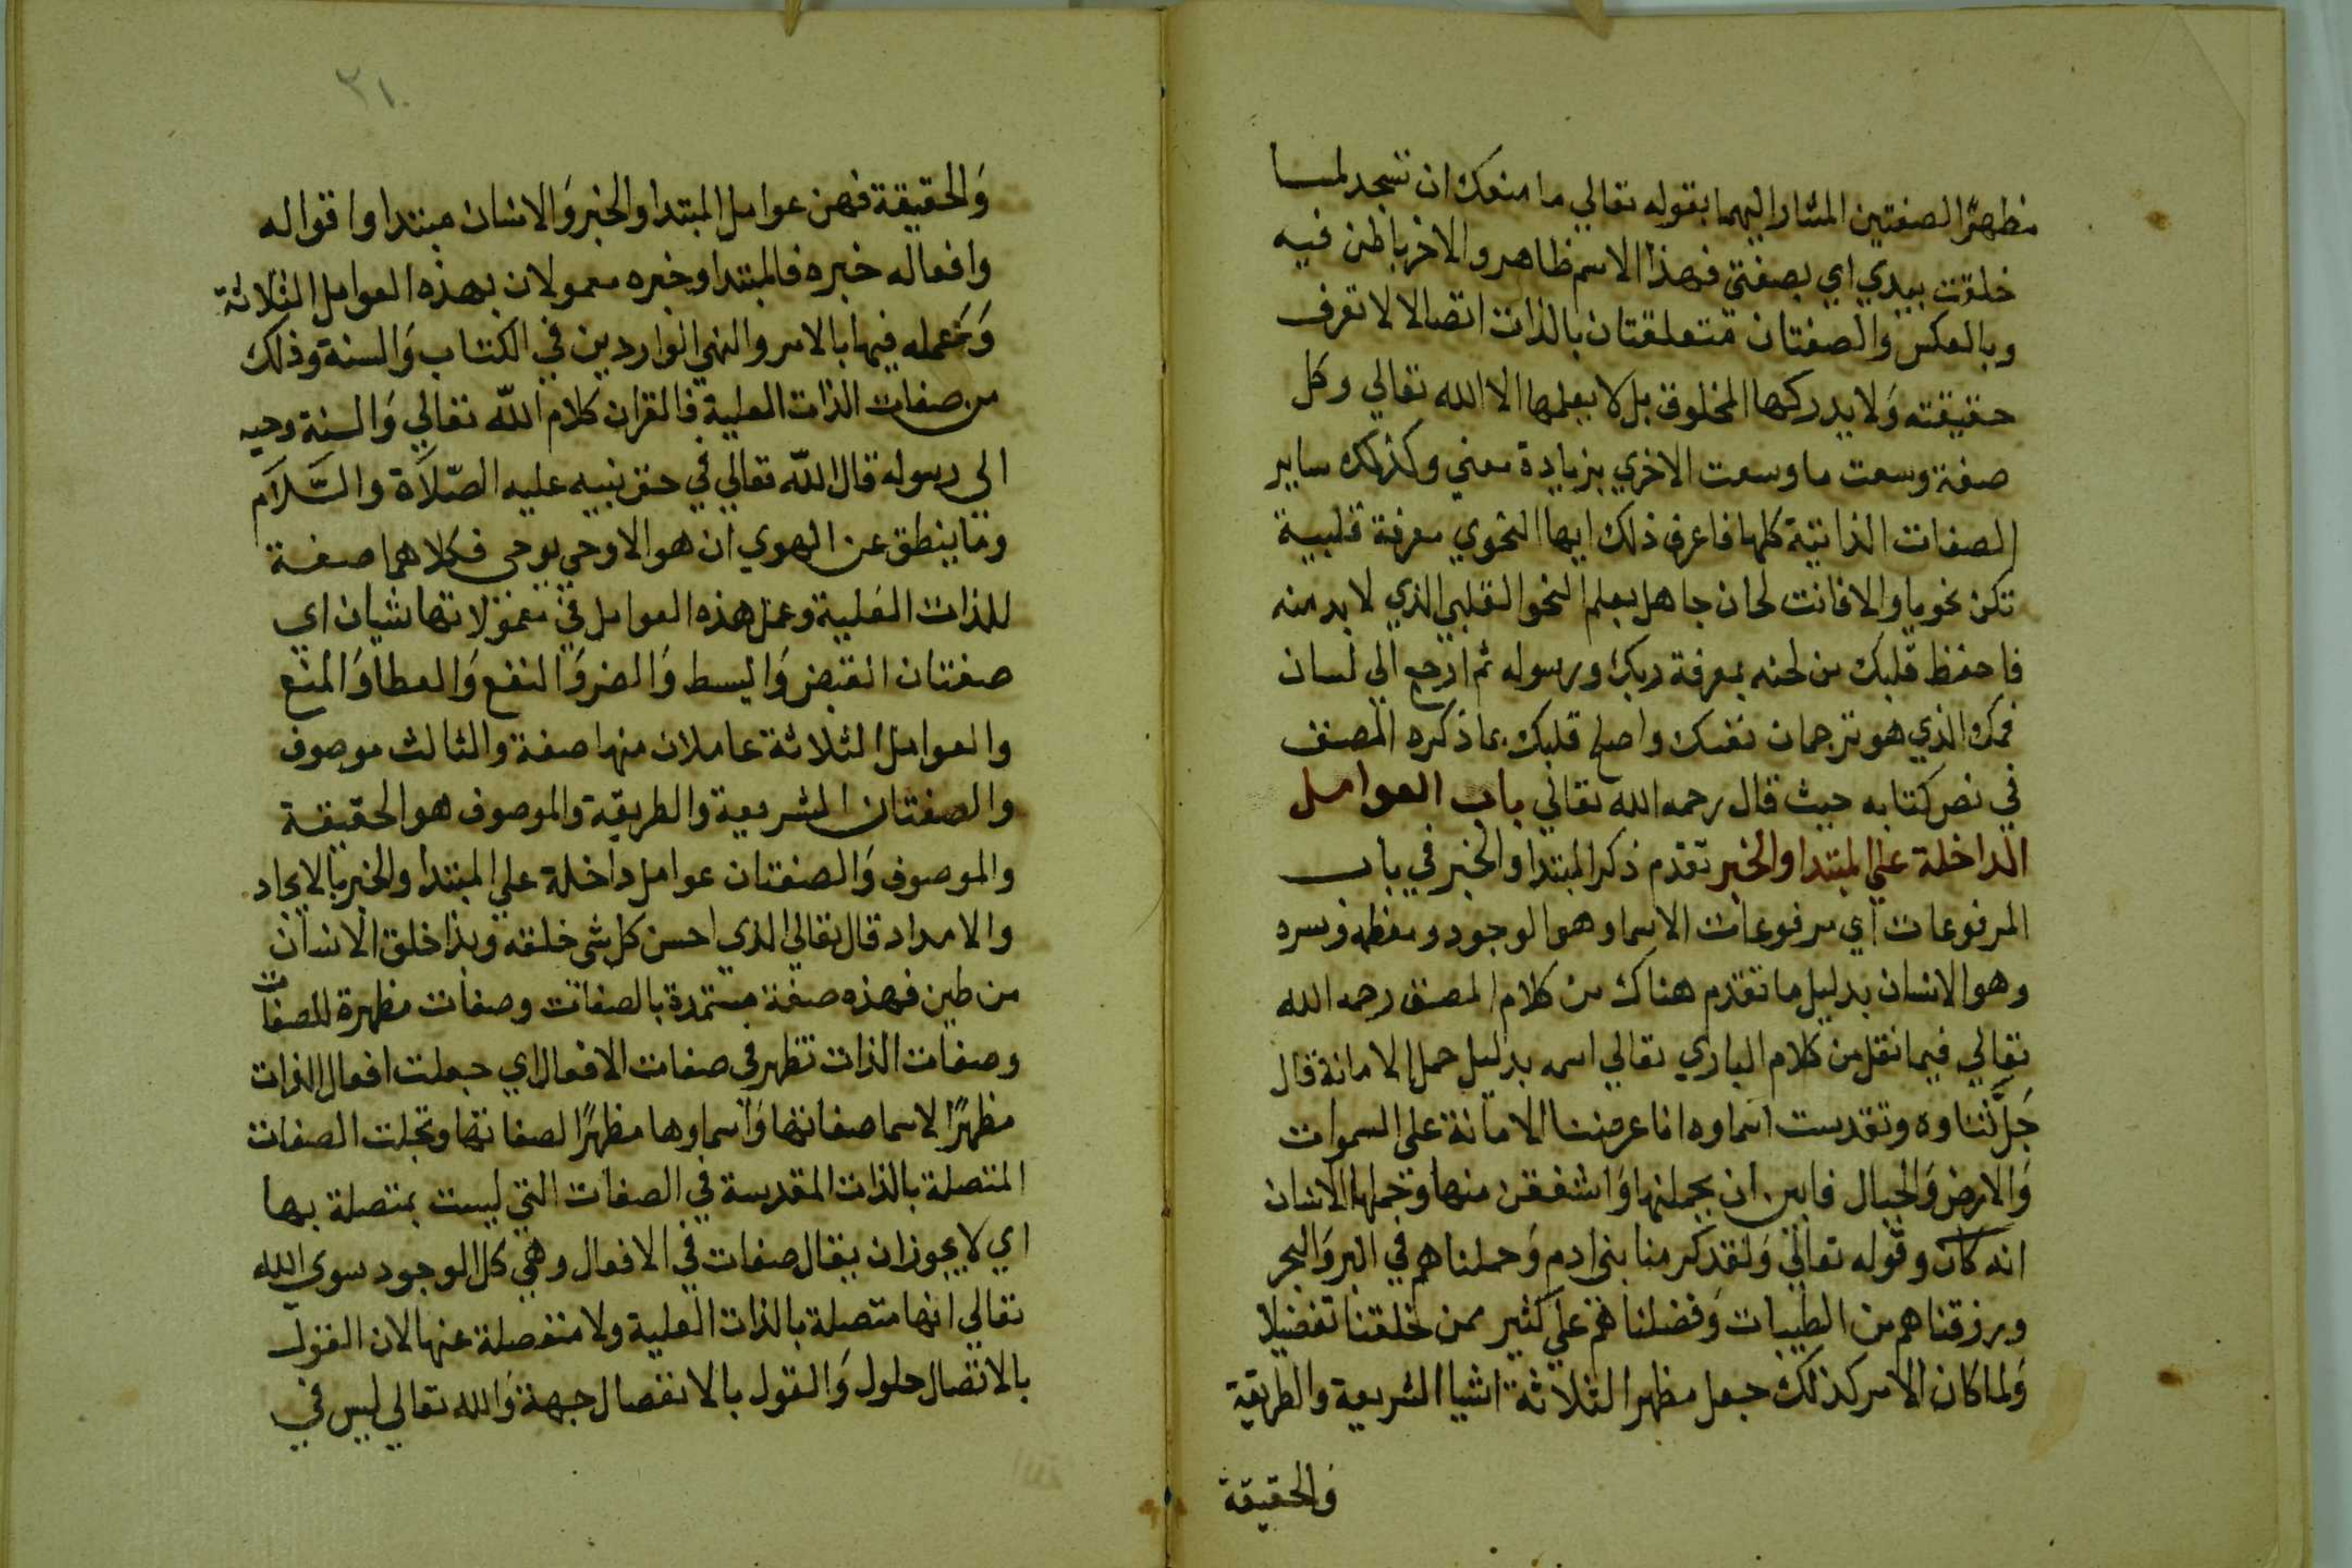 مظهرًا لصفتين المشار اليهما بقوله تعالي ما منعك ان تسجد لمـــا
خلقت بيدي اي بصفتي فهذا الاسم ظاهر والاخر باطن فيه
وبالعكس والصفتان متعلقتان بالذات اتصالا لا تعرف
حقيقته وَلا يدركها المخلوق بل لا يعلمها الا الله تعالي وكل
صفة وسعت ما وسعت الاخري بزيادة معني وكذلك ساير
الصفات الذاتية كلها فاعرف ذلك ايها النحوي معرفة قلبية
تكن نحويا والا فانت لحان جاهل بعلم النحو القلبي الذي لا بد منه
فاحفظ قلبك من لحنه بمعرفة ربك ورسوله ثم ارجع الي لسان
فمك الذي هو ترجمان نفسك واصلح قلبك بما ذكره المصنف
في نص كتابه حيث قال رحمه الله تعالي باب العوامل
الداخلة علي المبتدا والخبر تقدم ذكر المبتدا والخبر في باب
المرفوعات اي مرفوعات الاسما وهو الوجود ومعظمه وسره
وهو الانسان بدليل ما تقدم هناك من كلام المصنف رحمه الله
تعالي فيما نقل من كلام الباري تعالي اسمه بدليل حمل الامانة قال
جَلَّ ثناوه وتقدست اسماوه انا عرضنا الامانة على السموات
وَالارض وَالجبال فابين ان يحملنها وَاشفقن منها وَحملها الانسان
انه كان وقوله تعالي وَلقد كرمنا بني ادم وَحملناهم في البر وَالبحر
ورزقناهم من الطيبات وَفضلناهم علي كثير ممن خلقنا تفضيلا
وَلما كان الامر كذلك جعل مظهر الثلاثة اشيا الشريعة والطريقة
وَالحقيقة
٢١٠
وَالحقيقة فهن عوامل المبتدا والخبر وَالانسان مبتدا واقواله
وافعاله خبره فالمبتدا وخبره معمولان بهذه العوامل الثلاثة
وَعمله فيها بالامر والنهي الواردين في الكتاب وَالسنة وذلك
من صفات الذات العلية فالقران كلام الله تعالي وَالسنة وحيه
الي رسوله قال الله تعالي في حق نبيه عليه الصّلاة والسَّلام
وما ينطق عن الهوي ان هو الا وحي يوحي فكلاهما صفة
للذات العلية وعمل هذه العوامل في معمولاتها شيان اي
صفتان القبض وَالبسط وَالضر وَالنفع وَالعطا وَالمنع
والعوامل الثلاثة عاملان منها صفة والثالث موصوف
والصفتان الشريعة والطريقة والموصوف هو الحقيقة
والموصوف وَالصفتان عوامل داخلة علي المبتدا والخبر بالايجاد
والامداد قال تعالي الذي احسن كل شي خلقه وبدا خلق الانسان
من طين فهذه صفة مستمدة بالصفات وصفات مظهرة للصفات
وصفات الذات تظهر في صفات الافعال اي جعلت افعال الذات
مظهرًا لاسما صفاتها وَاسماوها مظهرًا لصفاتها وتجلت الصفات
المتصلة بالذات المقدسة في الصفات التي ليست بمتصلة بها
اي لا يجوز ان يقال صفات في الافعال وهي كل الوجود سوي الله
تعالي انها متصلة بالذات العلية ولا منفصلة عنها لان القول
بالاتصال حلول وَالقول بالانفصال جهة وَالله تعالي ليس في